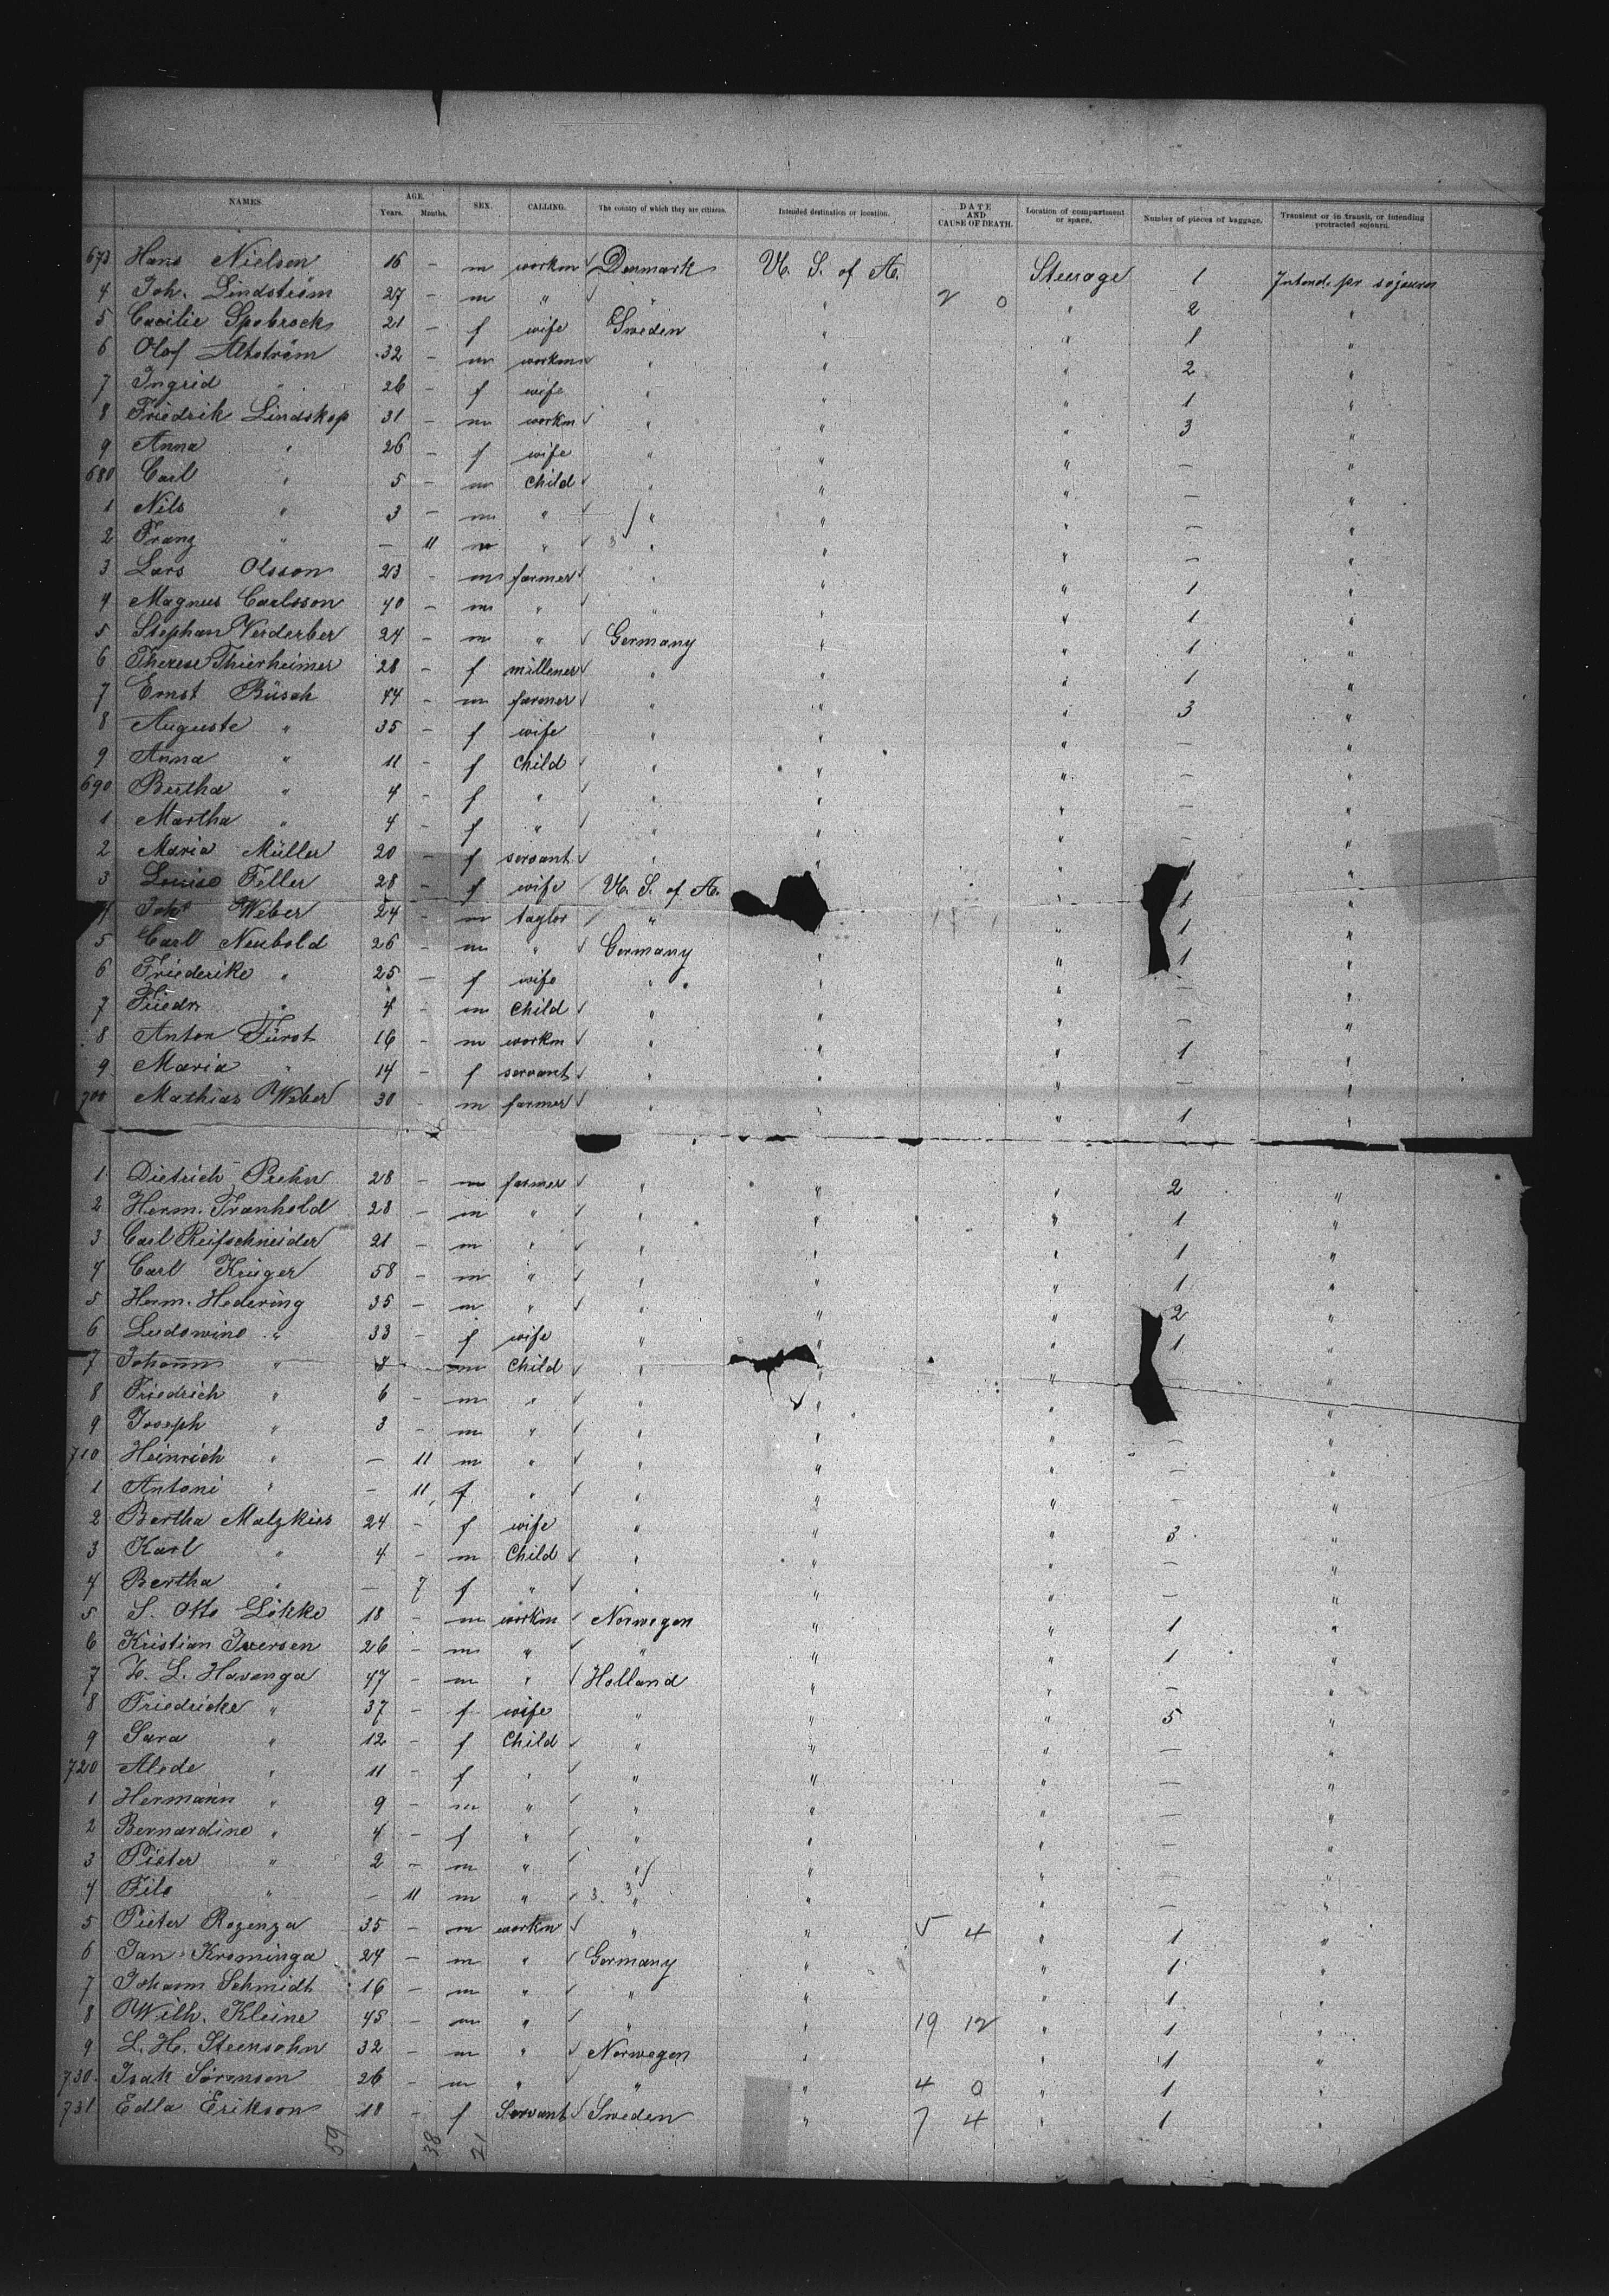 NAMES. AGE. Years. Months. SEX. CALLING. The country of which they are citizens. Intended destination or location. DATE AND CAUSE OF DEATH. Location of compartment or space. Number of pieces of baggage. Transient or in transit, or intending protracted sojourn.
673 Hans Nielsen 16 – m workm Denmark U. S. of A. Steerage 1 Intend. pr sojourn
4 Joh. Lindström 27 – m " " " 2 0 " 2 "
5 Caecilie 21 – f wife Sweden " " 1 "
6 Olof 32 m workm " " " 2 "
7 Ingrid " 26 – f wife " " " 1 "
8 Friedrik Lindskop 31 – m workm " " " 3 "
9 Anna " 26 – f wife " " " – "
680 Carl " 5 – m Child " " " – "
1 Nils " 3 – m " " " " – "
2 Franz " – 11 m " 3 " " " – "
3 Lars Olsson 23 – m farmer " " " 1 "
4 Magnus Carlsson 40 – m " " " " 1 "
5 Stephan Verderber 24 – m " Germany " " 1 "
6 Therese Thierheimer 28 – f millener " " " 1 "
7 Ernst Büsch 44 – m farmer " " " 3 "
8 Auguste " 35 – f wife " " " – "
9 Anna " 11 – f Child " " " – "
690 Bertha " 4 – f " " " " – "
1 Martha " 4 – f " " " " – "
2 Maria Müller 20 – f servant " " " 1 "
3 Louise Feller 28 – f wife U. S. of A. " 1 "
4 Joh Weber 24 – m taylor " " 1 "
5 Carl Neubold 26 – m " Germany " " 1 "
6 Friederike " 25 – f wife " " " – "
7 Friedr " 4 – m Child " " " – "
8 Anton Fürst 16 – m workm " " " 1 "
9 Maria " 14 – f servant " " " – "
700 Mathias Weber 30 – m farmer " " " 1 "
1 Dietrich Prehn 28 – m farmer " " " 2 "
2 Herm. Tranhold 28 – m " " " " 1 "
3 Carl Reifschneider 21 – m " " " " 1 "
4 Carl Krüger 58 – m " " " " 1 "
5 Herm. Hedering 35 – m " " " " 2 "
6 Ludowine " 33 – f wife " " " 1 "
7 Johann " m Child " " " "
8 Friedrich " 6 – m " " " " – "
9 Joseph " 3 – m " " " " – "
710 Heinrich " – 11 m " " " " – "
1 Antoni " – 11 f " " " " – "
2 Bertha Matzkies 24 – f wife " " " 3 "
3 Karl " 4 – m Child " " " – "
4 Bertha " – 7 f " " " " – "
5 S. Otto Lökke 18 – m workm Norwegen " " 1 "
6 Kristian Iversen 26 – m " " " " 1 "
7 L. Havenga 47 – m " Holland " " – "
8 Friedricke " 37 – f wife " " " 5 "
9 Sara " 12 – f Child " " " – "
720 Alede " 11 – f " " " " – "
1 Hermann " 9 – m " " " " – "
2 Bernardine " 4 – f " " " " – "
3 Pieter " 2 – m " " " " – "
4 File " – 11 m " 3. 3 " " " – "
5 Pieter Rozenga 35 – m workm " " 5 4 " 1 "
6 Jan Krominga 24 – m " Germany " " 1 "
7 Johann Schmidt 16 – m " " " " 1 "
8 Wilh. Kleine 45 – m " " " 19 12 " 1 "
9 L. H. Steensohn 32 – m " Norwegen " " 1 "
730. Isak Sörensen 26 – m " " " 4 0 " 1 "
731 Edla Erikson 18 – f Servant Sweden " 7 4 " 1 "
59 38 21